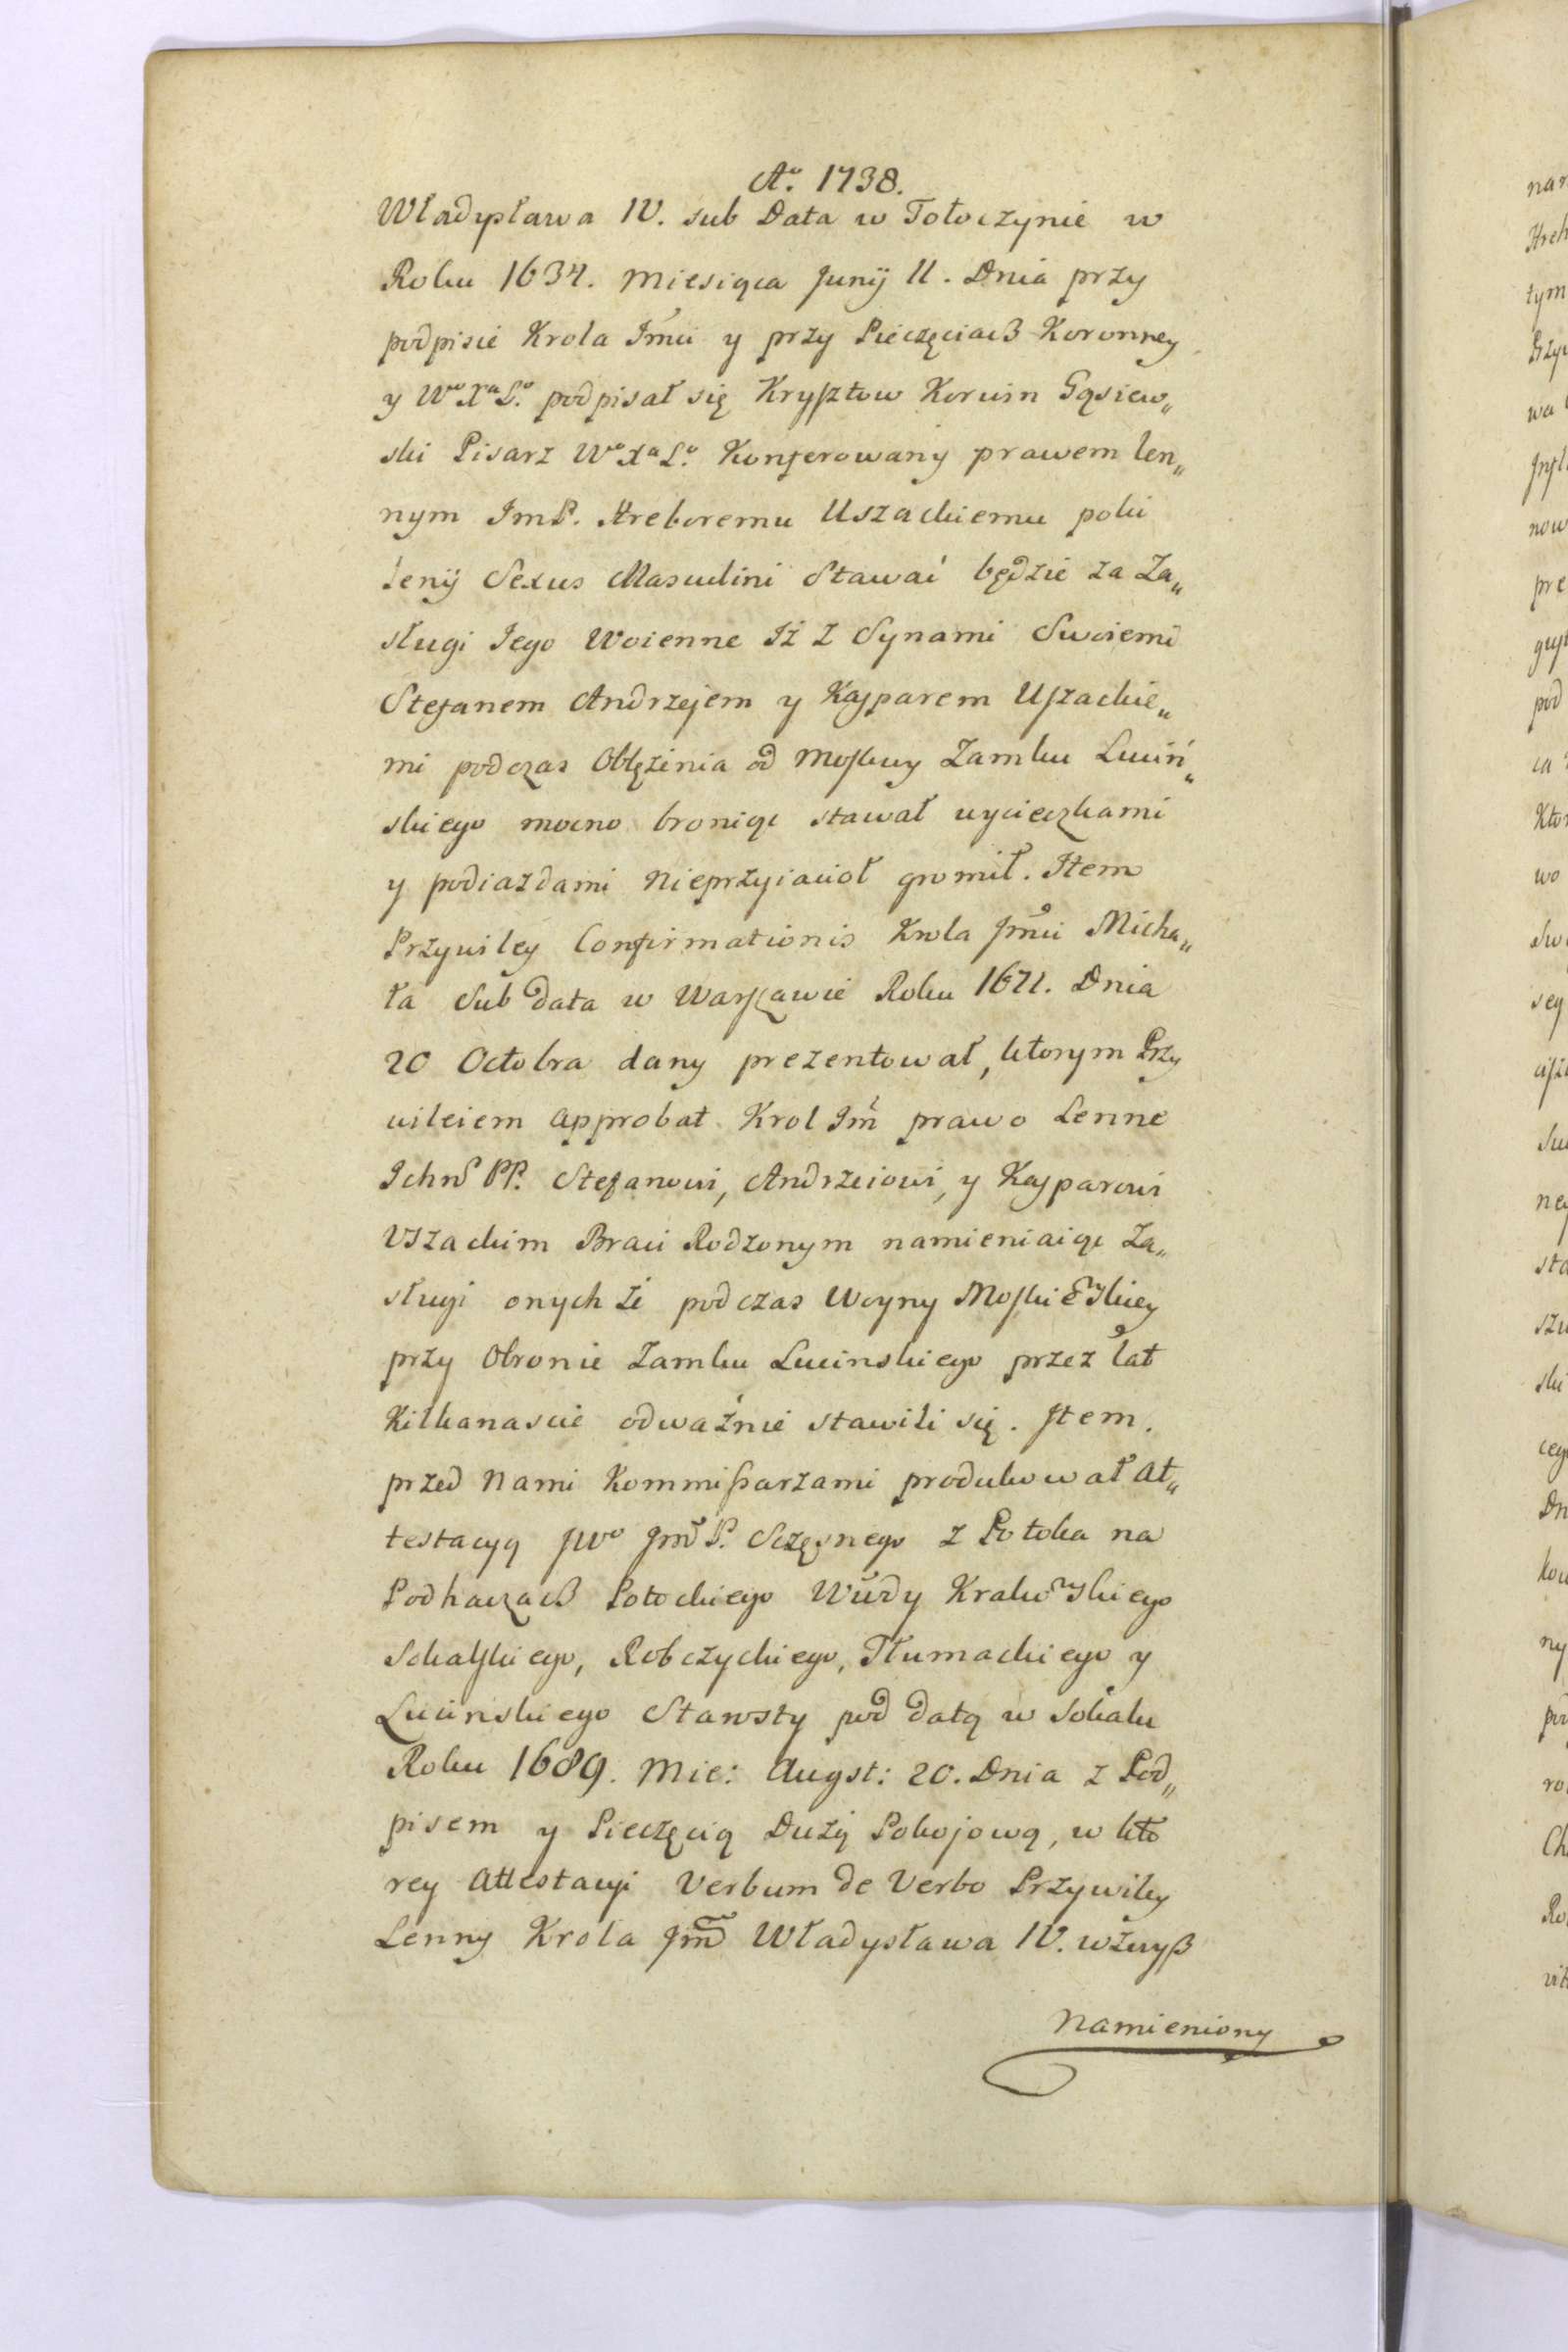 Aº. 1738.
Władysława IV. sub Data w Tołoczynie w
Roku 1634. Miesiąca Junÿ 11. Dnia przy
podpisie Krola Jmći y przy Pieczęciach Koronney
y Wº Xª Lº. podpisał się Krysztow Korwin Gąsiew„
ski Pisarz Wº Xª Lº. Konferowany prawem len„
nym ImP. Hrehoremu Uszackiemu poki
lenÿ Sexus Masculini Stawać będzie za Za„
sługi Jego Woienne Iż z Synami Swoiemi
Stefanem Andrzejem y Kasparem Uszackie„
mi podczas Oblężenia od Moskwy Zamku Luciń„
skiego mocno broniąc stawał wycieczkami
y podiazdami Nieprzyiacioł gromił. Item
Przywiley Confirmationis Krola Jmći Micha„
ła Sub data w Warszawie Roku 1671. Dnia
20 Octobra dany prezentował, ktorym Przy
wileiem approbat Krol Jmć prawo Lenne
Ichm PP. Stefanowi, Andrzeiowi, y Kasparowi
Uszackim Braci Rodzonym namieniaiąc Za„
sługi onych że podczas Woyny Moskiewskiey
przy Obronie Zamku Lucinskiego przez lat
Kilkanascie odważnie stawili się. Item.
przed Nami Kommissarzami produkował At„
testacyą JWº Jmć P. Sczęsnego z Potoka na
Podhaczach Potockiego Wwdy Krakowskiego
Sokalskiego, Robczyckiego, Tłumackiego y
Lucinskiego Starosty pod datą w Sokalu
Roku 1689. Mie: Augst: 20. Dnia z Pod„
pisem y Pieczęcią Dużą Pokojową, w kto
rey Attestacyi Verbum de Verbo Przywiley
Lenny Krola Jmć Władysława IV. wżwyß
Namieniony